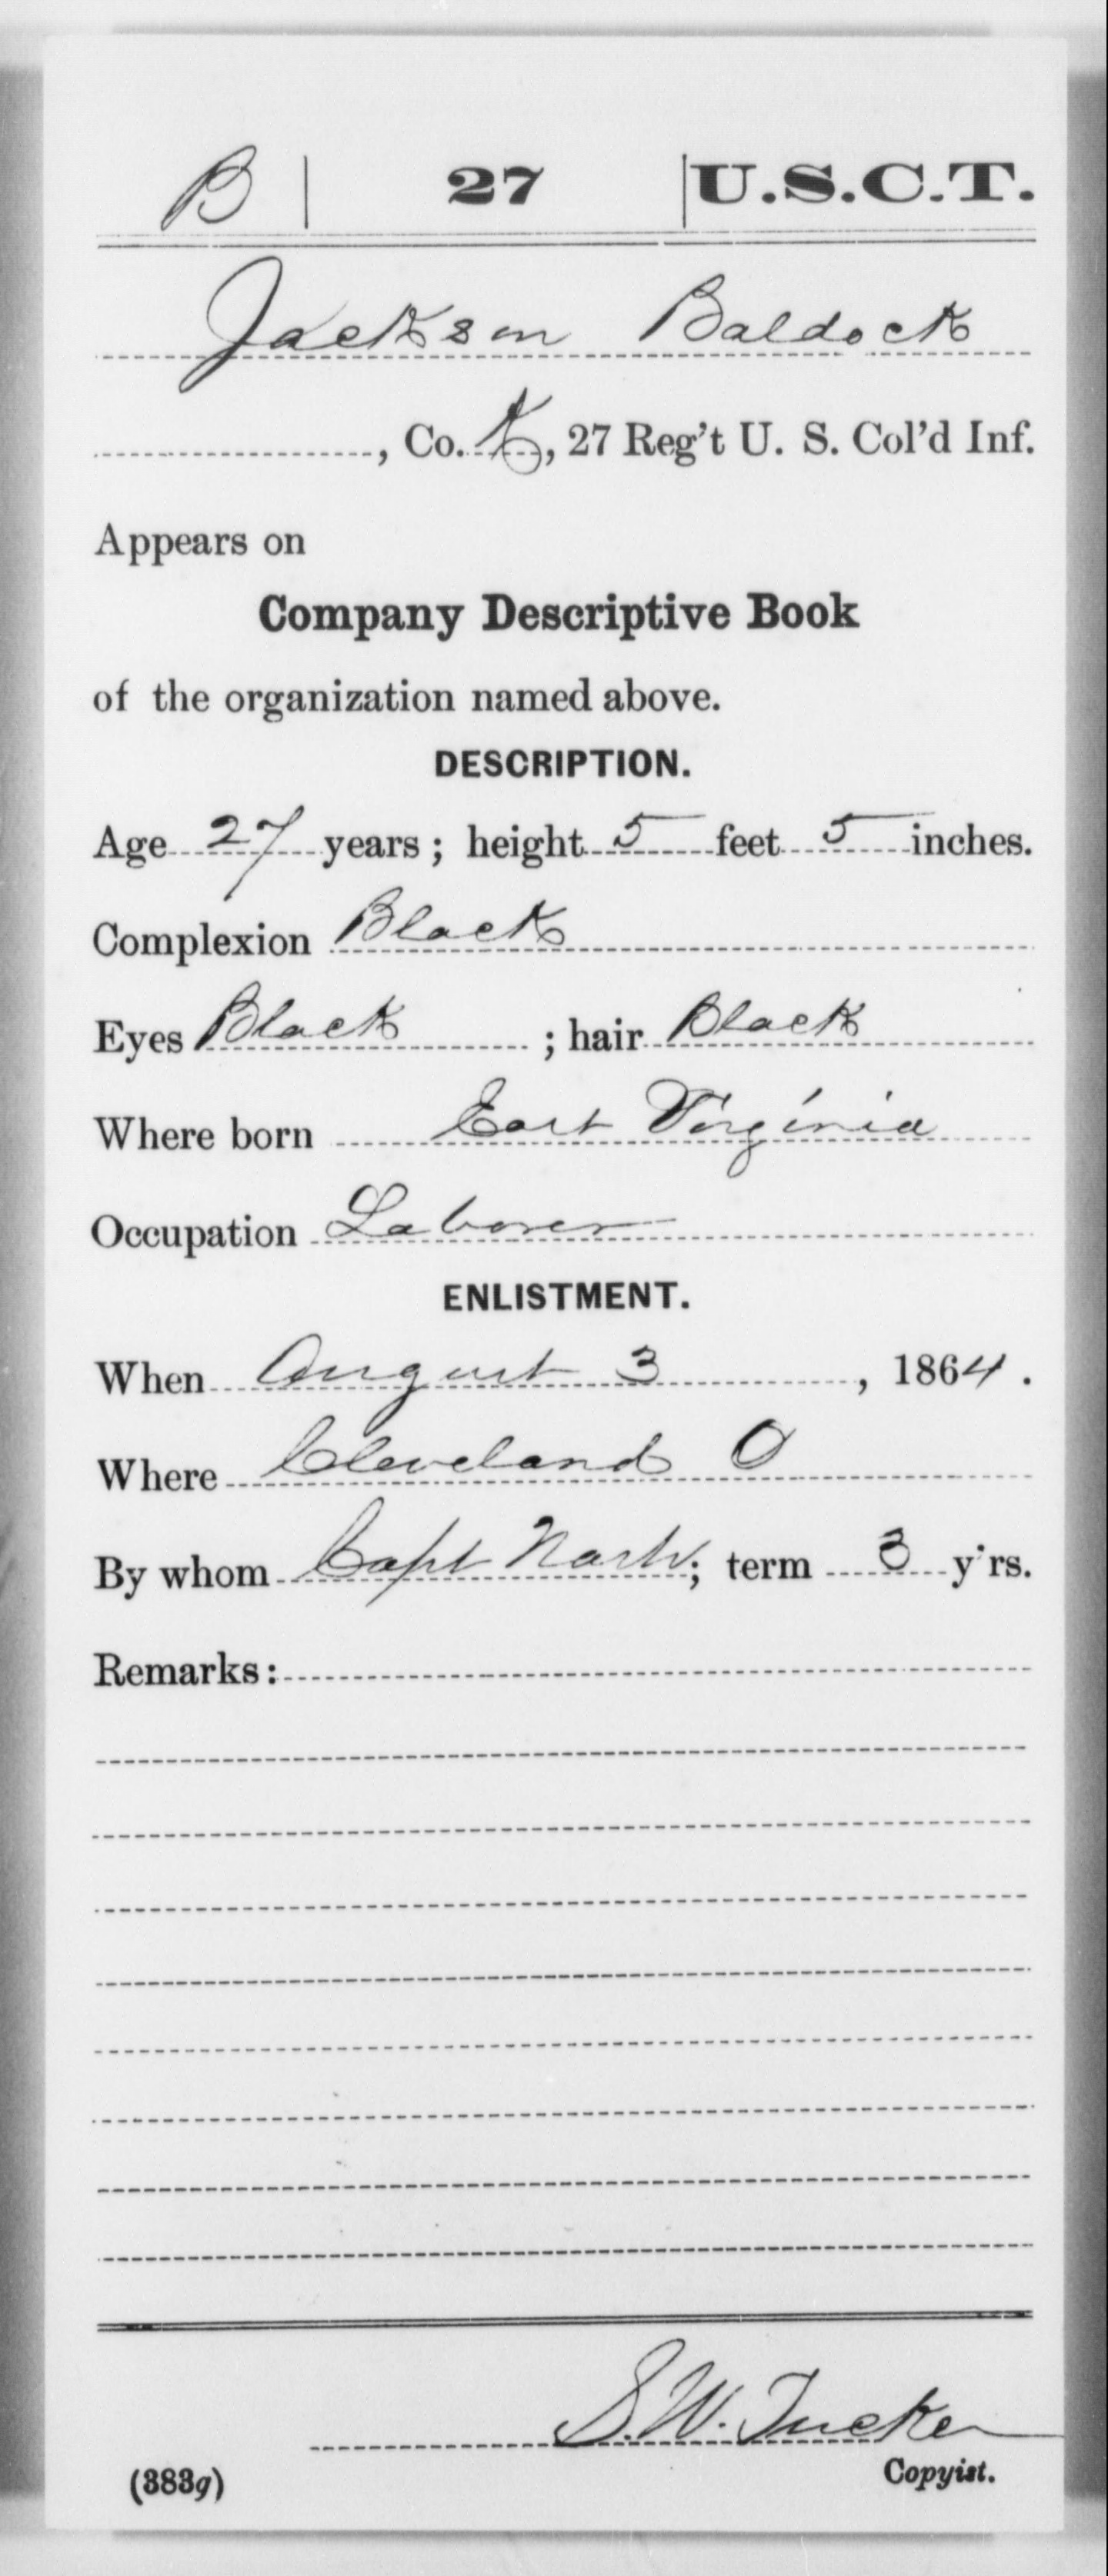 B | 27 | U.S.C.T.
Jackson Baldock
, Co. K, 27 Reg't U. S. Col'd Inf.
Appears on
Company Descriptive Book
of the organization named above.
DESCRIPTION.
Age 27 years; height 5 feet 5 inches.
Complexion Black
Eyes Black ; hair Black
Where born East Virginia
Occupation Laborer
ENLISTMENT.
When August 3, 1864.
Where Cleveland O
By whom Capt Nash; term 3 y'rs.
Remarks:
S. W. Tucker
Copyist.
(383g)